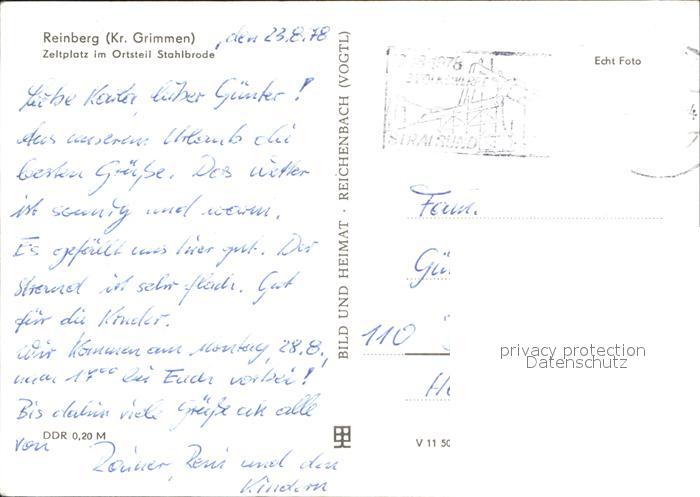 Reinberg (Kr. Grimmen)
Zeltplatz im Ortsteil Stahlbrode
, den 23.8.78
Liebe Karla, lieber Günter!
Aus unserem Urlaub die
besten Grüße. Das Wetter
ist sonnig und warm.
Es gefällt uns hier gut. Der
Strand ist sehr flach. Gut
für die Kinder.
Wir kommen am Montag, 28.8.,
17⁰⁰ bei Euch vorbei!
Bis dahin viele Grüße an alle
von
Rainer, Reni und den
Kindern
DDR 0,20 M
BILD UND HEIMAT · REICHENBACH (VOGTL)
V 11 50
Echt Foto
1978
STRALSUND
Fam.
Gü
110
H
privacy protection
Datenschutz